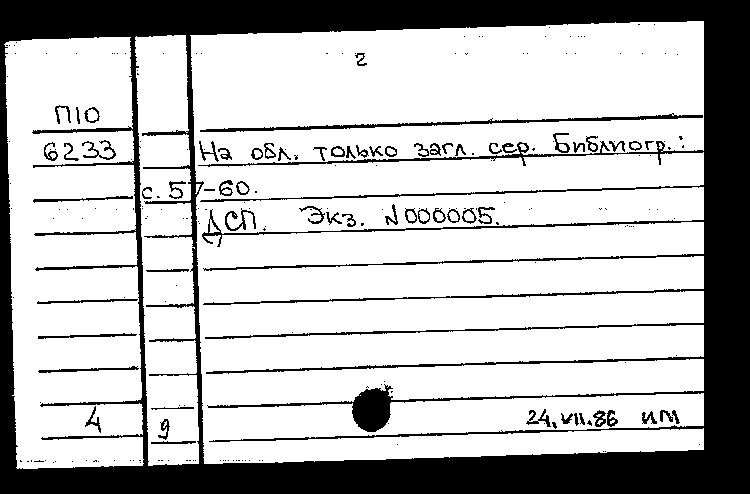 2
П10
6233 На обл. только загл. сер. Библиогр.:
с. 57-60.
ДСП. Экз. N000005.
4 9 24.VII.86 ИМ